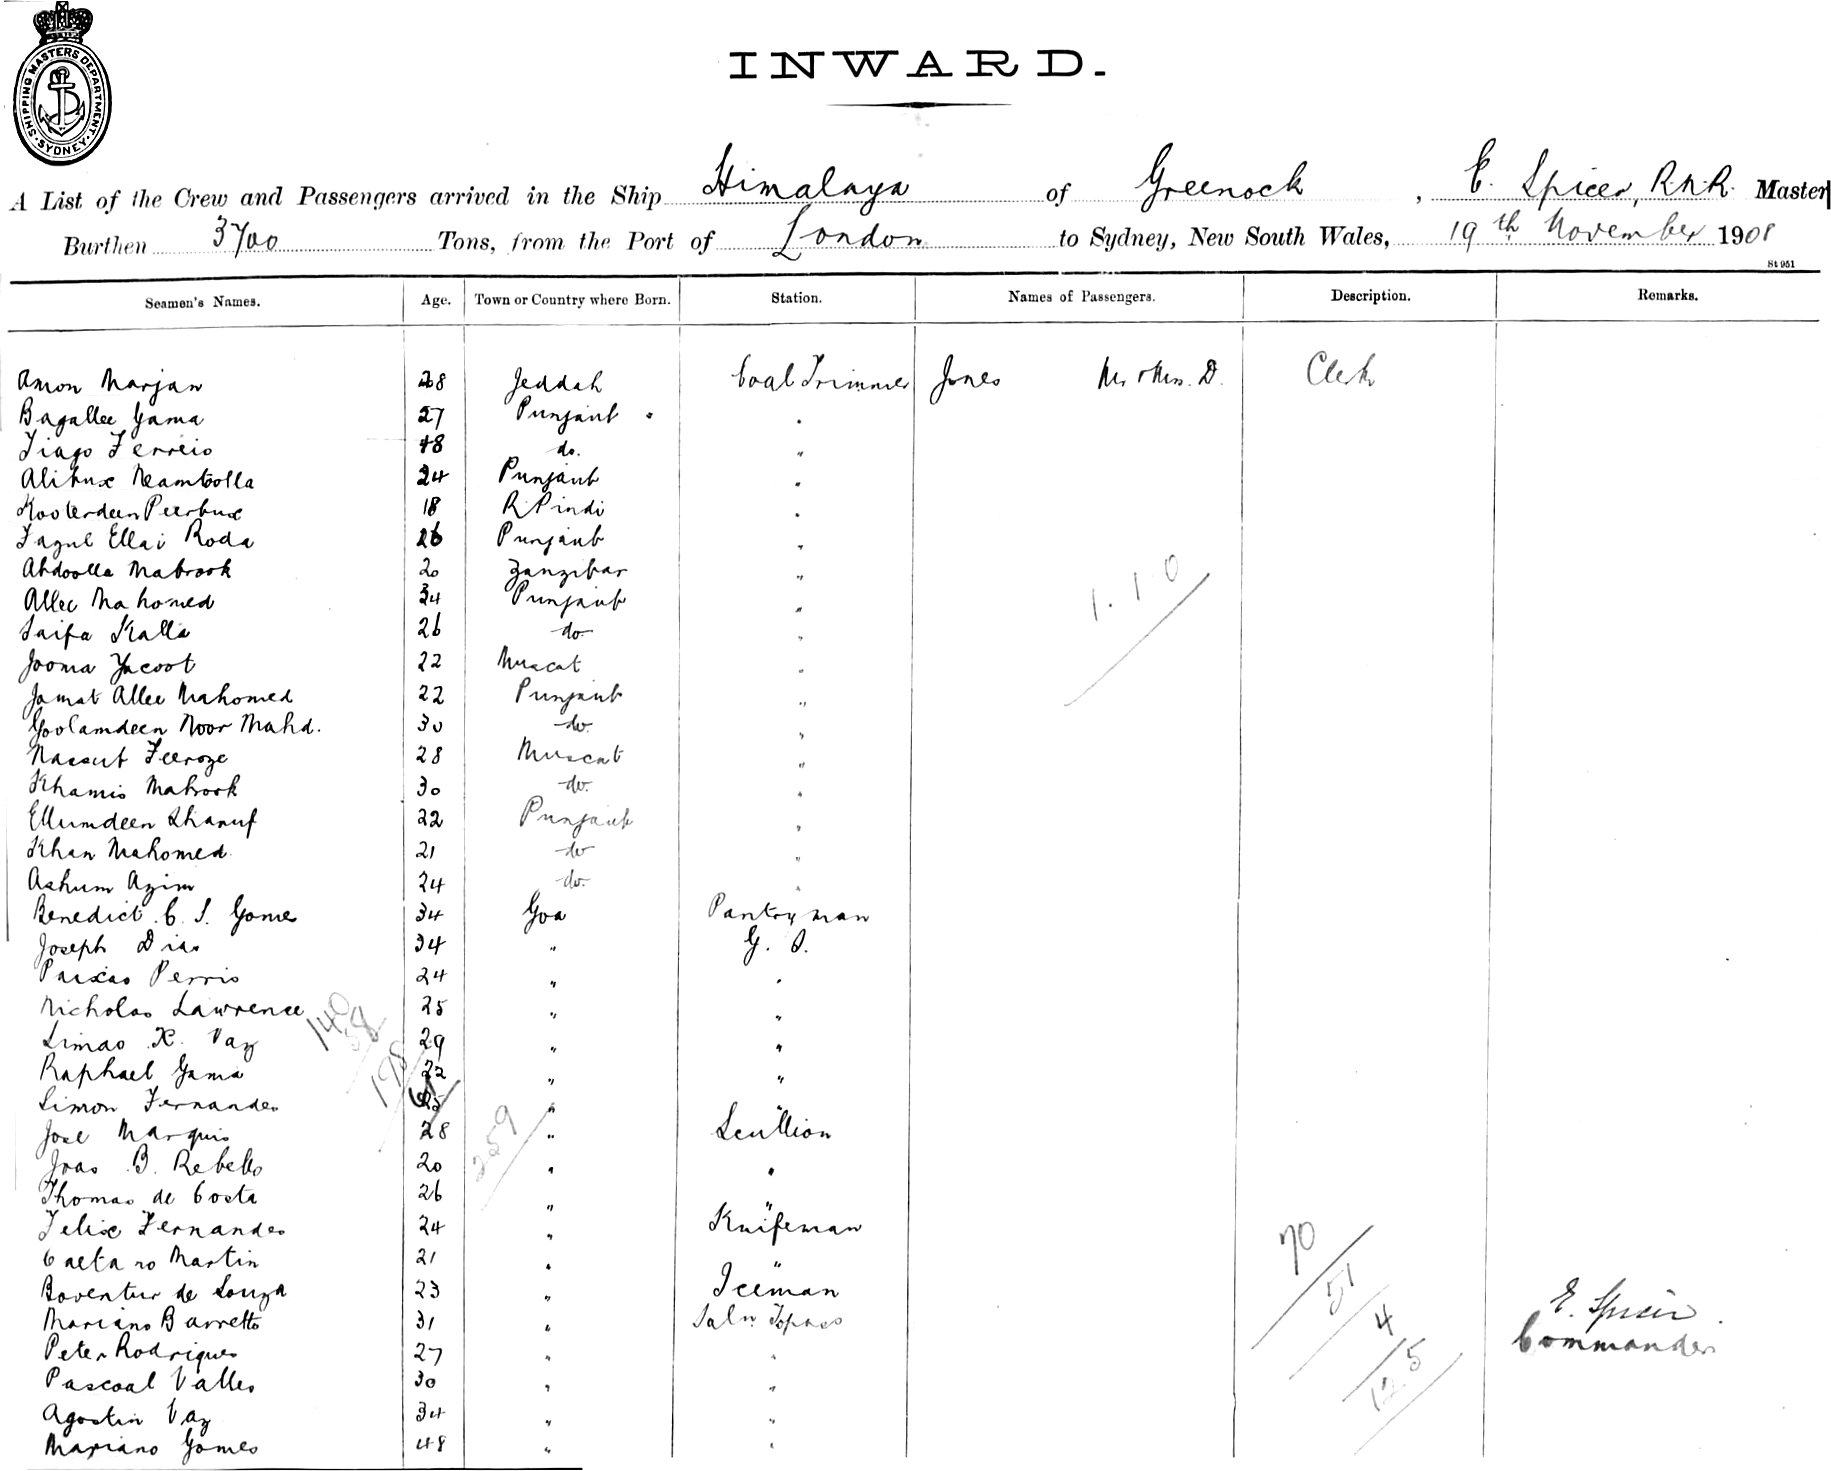 SHIPPING MASTERS DEPARTMENT. SYDNEY
INWARD.
A List of the Crew and Passengers arrived in the Ship Himalaya of Greenock, E. Spicer, R.N.R. Master
Burthen 3700 Tons, from the Port of London to Sydney, New South Wales, 19th November 1908
St 951
Seamen's Names. Age. Town or Country where Born. Station. Names of Passengers. Description. Remarks.
Amon Marjan 28 Jeddah Coal Trimmer Jones Mr & Mrs. D. Clerk
Bagallee Gama 27 Punjaub "
Tiago Ferreio 48 do. "
Alibux Neambolla 24 Punjaub "
Kooterdeen Peerbux 18 R. Pindi "
Fazul Ellai Roda 26 Punjaub "
Abdoolla Mabrook 20 Zanzibar "
Allee Mahomed 34 Punjaub "
Saifa Kalla 26 do "
Jooma Yacoot 22 Muscat "
Jamat Allee Mahomed 22 Punjaub "
Goolamdeen Noor Mahd. 30 do. "
Nassut Feeroze 28 Muscat "
Khamis Mabrook 30 do. "
Ellumdeen Sharuf 22 Punjaub "
Khan Mahomed 21 do "
Ashum Azim 24 do. "
Benedict C. S. Gomes 34 Goa Pantryman
Joseph Dias 34 " G. S.
Paixao Perris 24 " "
Nicholas Lawrence 25 " "
Simao X. Vaz 29 " "
Raphael Gama 22 " "
Simon Fernandes 25 " "
Jose Marquis 28 " Scullion
Joao B. Rebello 20 " "
Thomas de Costa 26 " "
Felix Fernandes 24 " Knifeman
Caetano Martin 21 " "
Boventur de Souza 23 " Iceman
Mariano Barretto 31 " Saln. Topass
Peter Rodrigues 27 " "
Pascoal Valles 30 " "
Agostin Vaz 34 " "
Mariano Gomes 48 " "
1. 1. 0
140
58
198
61
259
70
51
4
125
E. Spicer
Commander